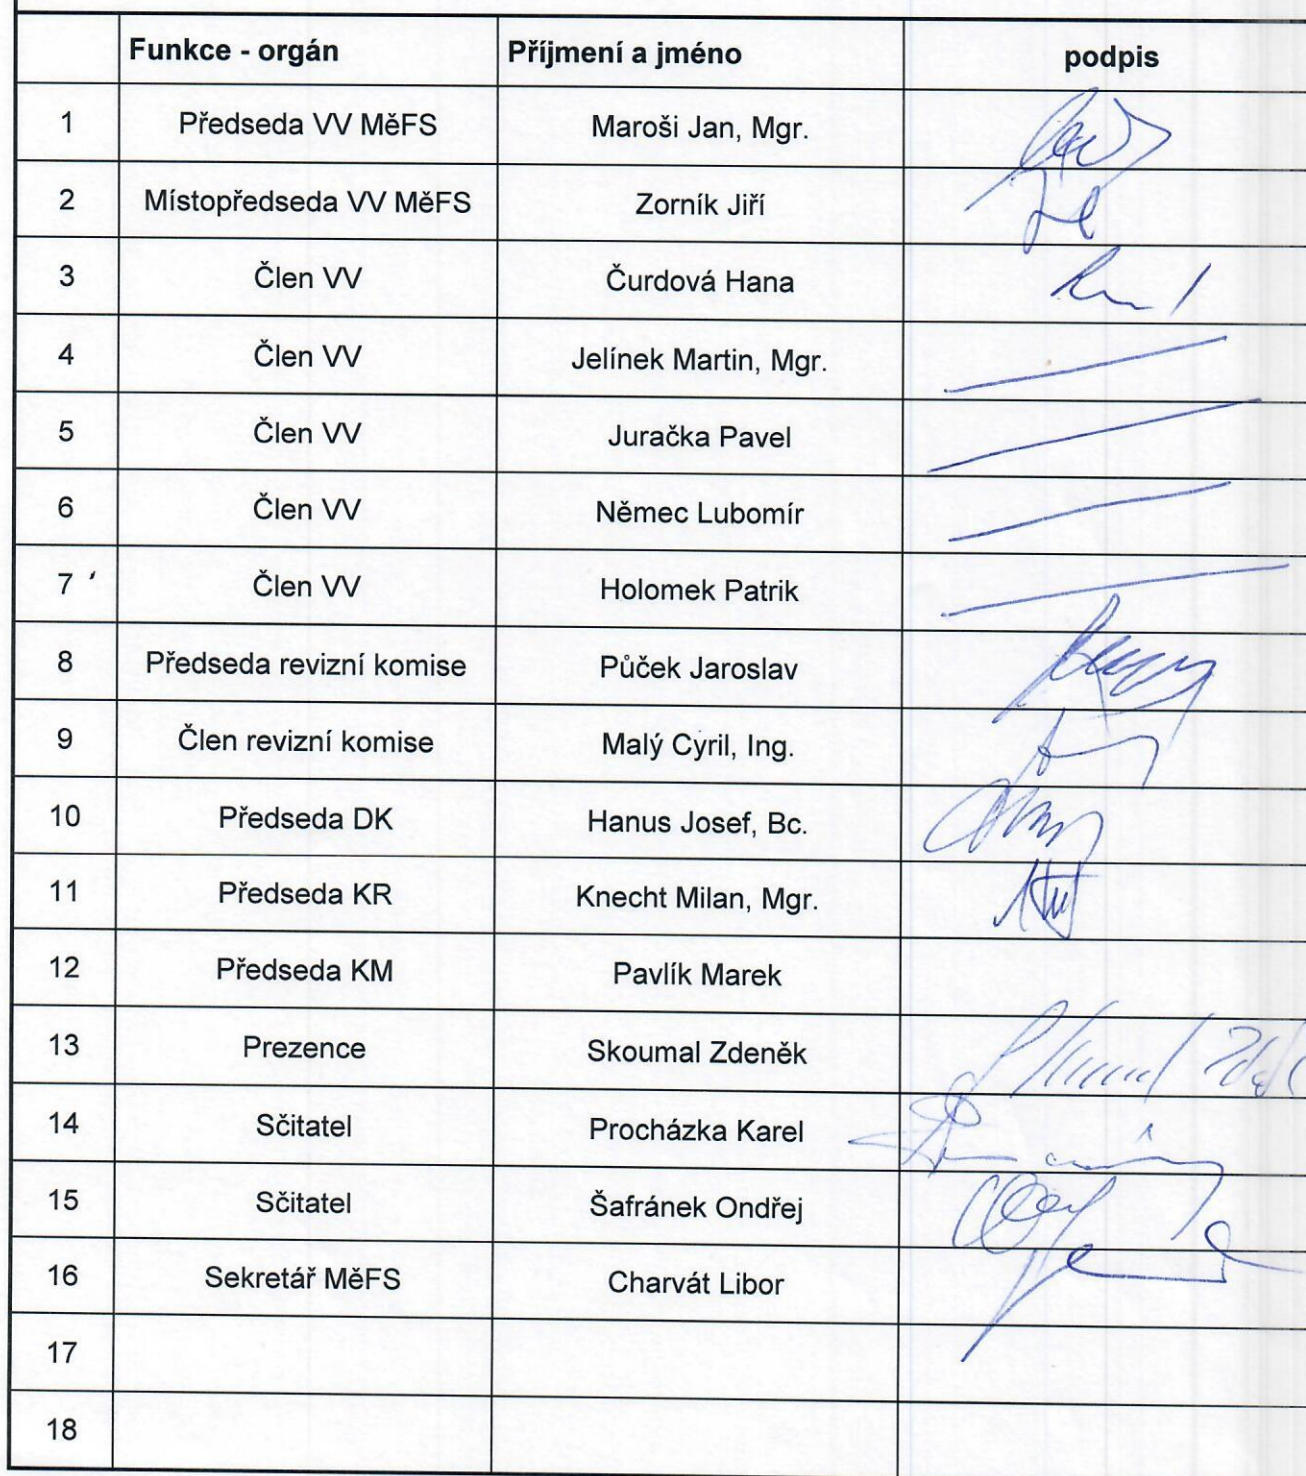 Funkce - orgán Příjmení a jméno podpis
1 Předseda VV MěFS Maroši Jan, Mgr.
2 Místopředseda VV MěFS Zorník Jiří
3 Člen VV Čurdová Hana
4 Člen VV Jelínek Martin, Mgr.
5 Člen VV Juračka Pavel
6 Člen VV Němec Lubomír
7 Člen VV Holomek Patrik
8 Předseda revizní komise Půček Jaroslav
9 Člen revizní komise Malý Cyril, Ing.
10 Předseda DK Hanus Josef, Bc.
11 Předseda KR Knecht Milan, Mgr.
12 Předseda KM Pavlík Marek
13 Prezence Skoumal Zdeněk
14 Sčitatel Procházka Karel
15 Sčitatel Šafránek Ondřej
16 Sekretář MěFS Charvát Libor
17
18